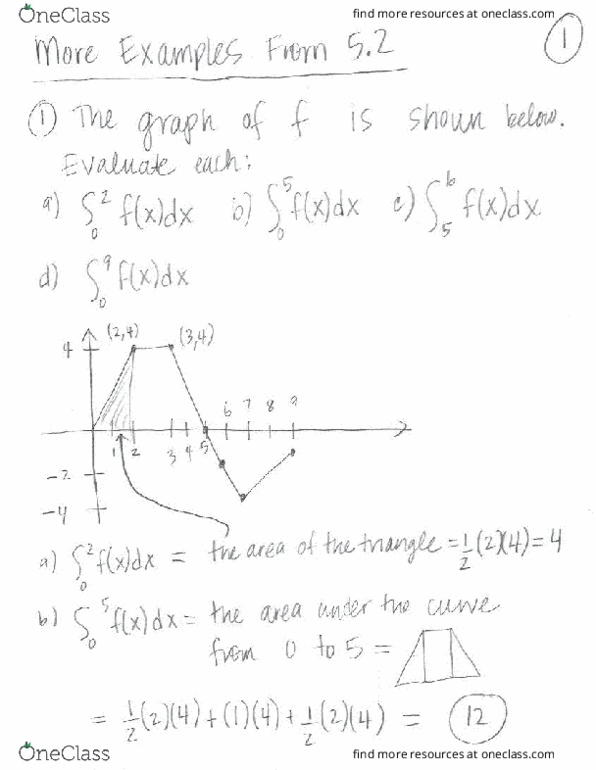 OneClass find more resources at oneclass.com
More Examples From 5.2 1
① The graph of f is shown below.
Evaluate each:
a) ∫₀² f(x)dx b) ∫₀⁵ f(x)dx c) ∫₅⁶ f(x)dx
d) ∫₀⁹ f(x)dx
(2,4) (3,4)
4
6 7 8 9
1 2 3 4 5
-2
-4
a) ∫₀² f(x)dx = the area of the triangle = 1/2 (2)(4) = 4
b) ∫₀⁵ f(x)dx = the area under the curve
from 0 to 5 =
= 1/2 (2)(4) + (1)(4) + 1/2 (2)(4) = 12
OneClass find more resources at oneclass.com